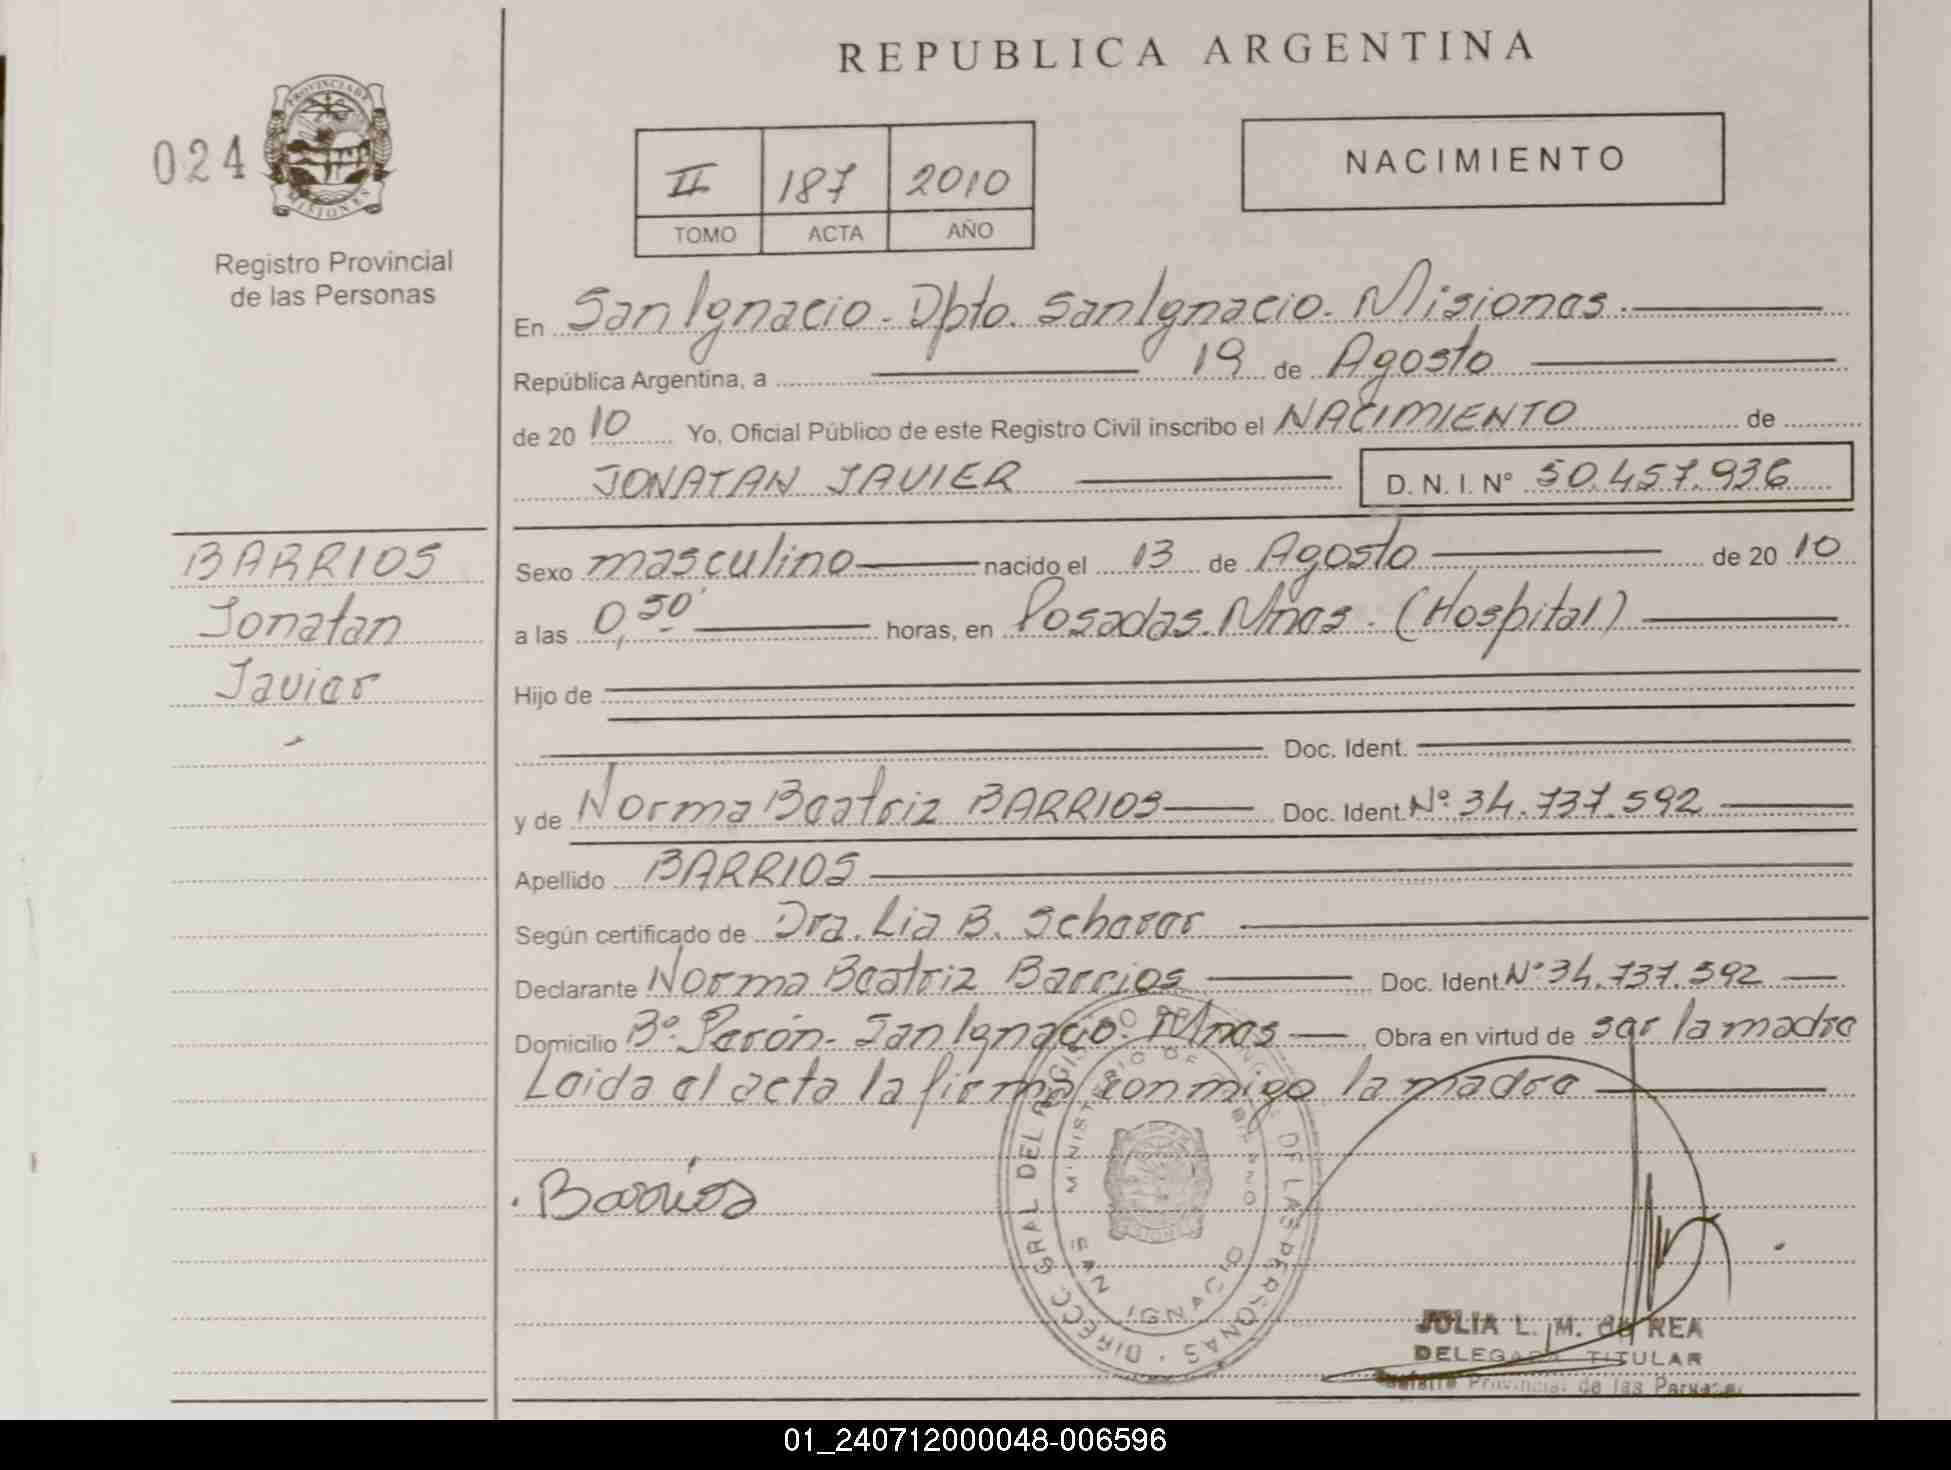 REPUBLICA ARGENTINA
024
PROVINCIA DE
MISIONES
Registro Provincial
de las Personas
II 187 2010
TOMO ACTA AÑO
NACIMIENTO
En San Ignacio - Dpto. San Ignacio - Misiones.
República Argentina, a 19 de Agosto
de 20 10 Yo, Oficial Público de este Registro Civil inscribo el NACIMIENTO de
JONATAN JAVIER D. N. I. N° 50.457.936
BARRIOS
Jonatan
Javier
Sexo masculino nacido el 13 de Agosto de 20 10
a las 0,50' horas, en Posadas. Mnes. (Hospital)
Hijo de
Doc. Ident.
y de Norma Beatriz BARRIOS Doc. Ident. N° 34.737.592
Apellido BARRIOS
Según certificado de Dra. Lia B. Scherer
Declarante Norma Beatriz Barrios Doc. Ident. N° 34.737.592
Domicilio B° Perón - San Ignacio. Mnes Obra en virtud de ser la madre
Leida el acta la firma conmigo la madre
Barrios
DIRECC. GRAL DEL REGISTRO PROVINCIAL DE LAS PERSONAS
MINISTERIO DE GOBIERNO
SAN IGNACIO
JULIA L. M. de REA
DELEGADA TITULAR
Registro Provincial de las Personas
01_240712000048-006596